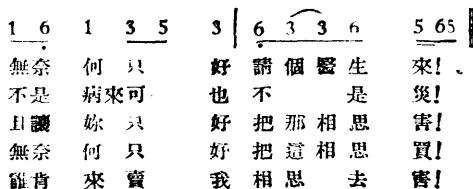 1 6 1 3 5 3 | 6 3 3 6 5 65 |
無奈 何 只 好 請 個 醫 生 來!
不是 病來可 也 不 是 災!
且讓 妳 只 好 把 那 相 思 害!
無奈 何 只 好 把 這 相 思 買!
誰肯 來 賣 我 相 思 去 害!